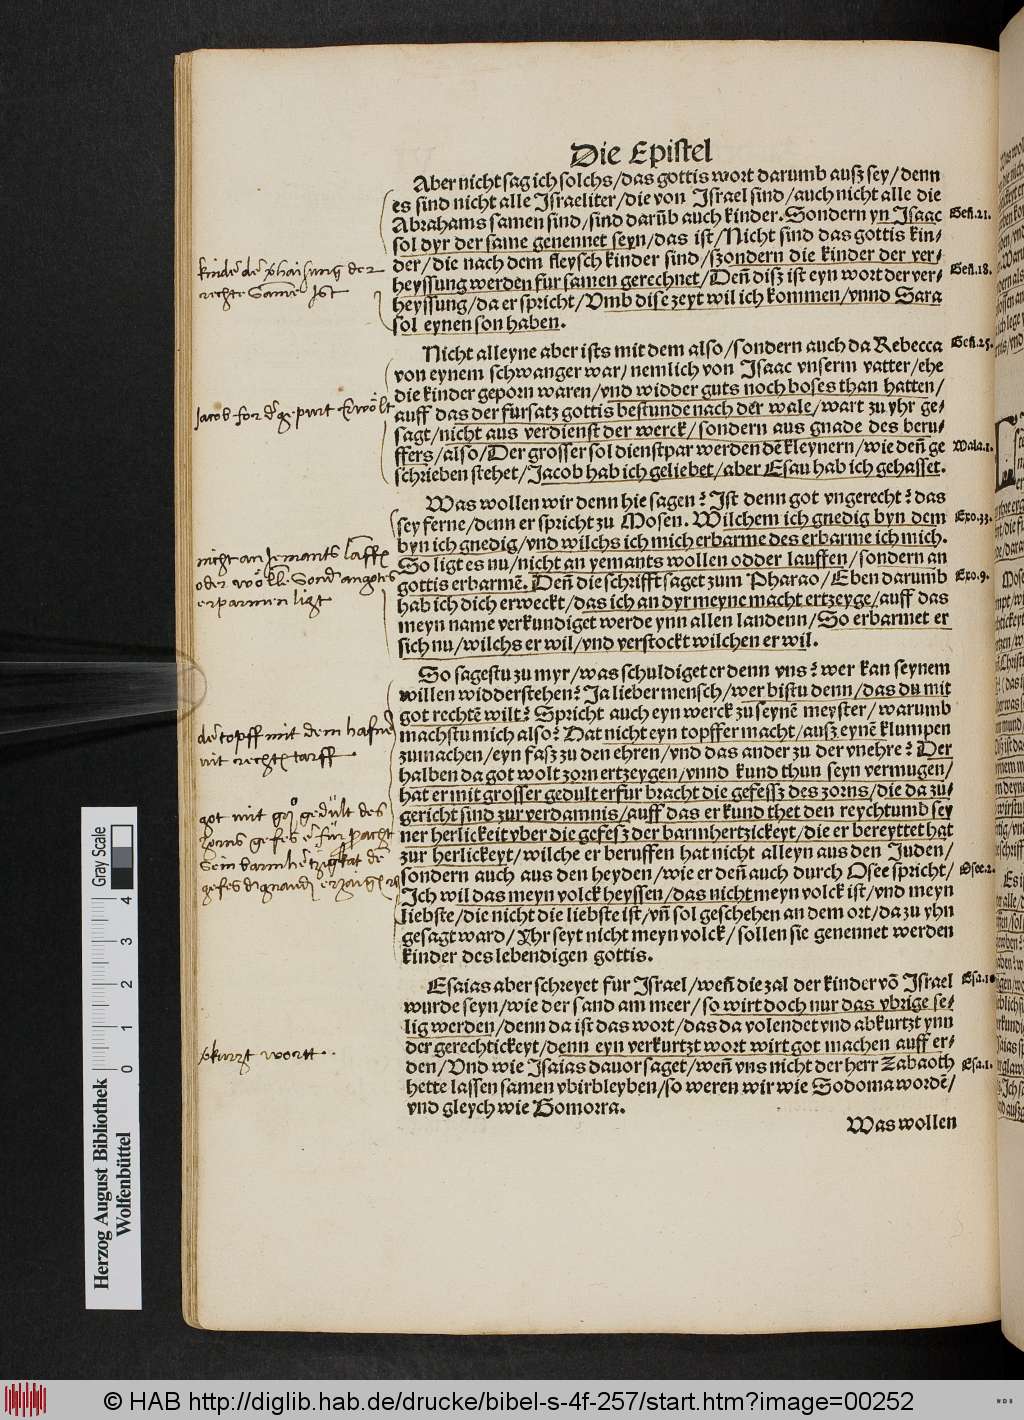 Die Epistel
Aber nicht sag ich solchs/das gottis wort darumb ausz sey/denn
es sind nicht alle Israeliter/die von Israel sind/auch nicht alle die
Abrahams samen sind/sind darūb auch kinder. Sondern yn Isaac
Geñ.21.
sol dyr der same genennet seyn/das ist/Nicht sind das gottis kin⸗
der/die nach dem fleysch kinder sind/szondern die kinder der ver⸗
Geñ.18.
heyssung werden fur samen gerechnet/Deñ disz ist eyn wort der ver⸗
heyssung/da er spricht/Umb dise zeyt wil ich kommen/vnnd Sara
sol eynen son haben.
rechte Same ist
Nicht alleyne aber ists mit dem also/sondern auch da Rebecca
Geñ.25.
von eynem schwanger war/nemlich von Isaac vnserm vatter/ehe
die kinder geporn waren/vnd widder guts noch boses than hatten/
auff das der fursatz gottis bestunde nach der wale/wart zu yhr ge⸗
sagt/nicht aus verdienst der werck/sondern aus gnade des beru⸗
ffers/also/Der grosser sol dienstpar werden dē kleynern/wie deñ ge
Mala.1.
schrieben stehet/Jacob hab ich geliebet/aber Esau hab ich gehasset.
Was wollen wir denn hie sagen? Ist denn got vngerecht? das
sey ferne/denn er spricht zu Mosen. Wilchem ich gnedig byn dem
Exo.33.
byn ich gnedig/vnd wilchs ich mich erbarme des erbarme ich mich.
So ligt es nu/nicht an yemants wollen odder lauffen/sondern an
gottis erbarmē. Deñ die schrifft saget zum Pharao/Eben darumb
Exo.9.
hab ich dich erweckt/das ich an dyr meyne macht ertzeyge/auff das
meyn name verkundiget werde ynn allen landenn/So erbarmet er
sich nu/wilchs er wil/vnd verstockt wilchen er wil.
erparmen ligt
So sagestu zu myr/was schuldiget er denn vns? wer kan seynem
willen widderstehen? Ja lieber mensch/wer bistu denn/das du mit
got rechtē wilt? Spricht auch eyn werck zu seynē meyster/warumb
machstu mich also? Hat nicht eyn topffer macht/ausz eynē klumpen
zumachen/eyn fasz zu den ehren/vnd das ander zu der vnehre? Der
halben da got wolt zorn ertzeygen/vnnd kund thun seyn vermugen/
hat er mit grosser gedult erfur bracht die gefessz des zorns/die da zu⸗
gericht sind zur verdamnis/auff das er kund thet den reychtumb sey
ner herlickeit vber die gefesz der barmhertzickeyt/die er bereyttet hat
zur herlickeyt/wilche er beruffen hat nicht alleyn aus den Juden/
sondern auch aus den heyden/wie er deñ auch durch Osee spricht/
Osee.2.
Ich wil das meyn volck heyssen/das nicht meyn volck ist/vnd meyn
liebste/die nicht die liebste ist/vñ sol geschehen an dem ort/da zu yhn
gesagt ward/Yhr seyt nicht meyn volck/sollen sie genennet werden
kinder des lebendigen gottis.
Esaias aber schreyet fur Israel/weñ die zal der kinder vō Israel
Esa.10
wurde seyn/wie der sand am meer/so wirt doch nur das vbrige se⸗
lig werden/denn da ist das wort/das da volendet vnd abkurtzt ynn
der gerechtickeyt/denn eyn verkurtzt wort wirt got machen auff er⸗
den/Und wie Isaias dauor saget/weñ vns nicht der herr Zabaoth
Esa.1.
hette lassen samen vbirbleyben/so weren wir wie Sodoma wordē/
vnd gleych wie Gomorra.
Was wollen
Gray Scale
0 1 2 3 4
Herzog August Bibliothek
Wolfenbüttel
© HAB http://diglib.hab.de/drucke/bibel-s-4f-257/start.htm?image=00252